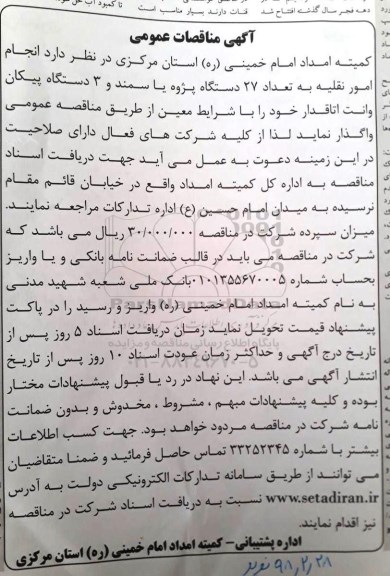 دهه فجر سال گذشته افتتاح شد
قنات دارند بسیار مناسب است
تا کمبود آب
آگهی مناقصات عمومی
کمیته امداد امام خمینی (ره) استان مرکزی در نظر دارد انجام
امور نقلیه به تعداد ۲۷ دستگاه پژوه یا سمند و ۳ دستگاه پیکان
وانت اتاقدار خود را با شرایط معین از طریق مناقصه عمومی
واگذار نماید لذا از کلیه شرکت های فعال دارای صلاحیت
در این زمینه دعوت به عمل می آید جهت دریافت اسناد
مناقصه به اداره کل کمیته امداد واقع در خیابان قائم مقام
نرسیده به میدان امام حسین (ع) اداره تدارکات مراجعه نمایند.
میزان سپرده شرکت در مناقصه ۳۰/۰۰۰/۰۰۰ ریال می باشد که
شرکت در مناقصه می باید در قالب ضمانت نامه بانکی و یا واریز
بحساب شماره ۰۱۰۱۳۵۵۶۷۰۰۰۵ بانک ملی شعبه شهید مدنی
به نام کمیته امداد امام خمینی (ره) واریز و رسید را در پاکت
پیشنهاد قیمت تحویل نماید زمان دریافت اسناد ۵ روز پس از
تاریخ درج آگهی و حداکثر زمان عودت اسناد ۱۰ روز پس از تاریخ
انتشار آگهی می باشد. این نهاد در رد یا قبول پیشنهادات مختار
بوده و کلیه پیشنهادات مبهم ، مشروط ، مخدوش و بدون ضمانت
نامه شرکت در مناقصه مردود خواهد بود. جهت کسب اطلاعات
بیشتر با شماره ۳۳۲۵۲۳۴۵ تماس حاصل فرمائید و ضمنا متقاضیان
می توانند از طریق سامانه تدارکات الکترونیکی دولت به آدرس
www.setadiran.ir نسبت به دریافت اسناد شرکت در مناقصه
نیز اقدام نمایند.
اداره پشتیبانی- کمیته امداد امام خمینی (ره) استان مرکزی
۹۸,۲,۲۸